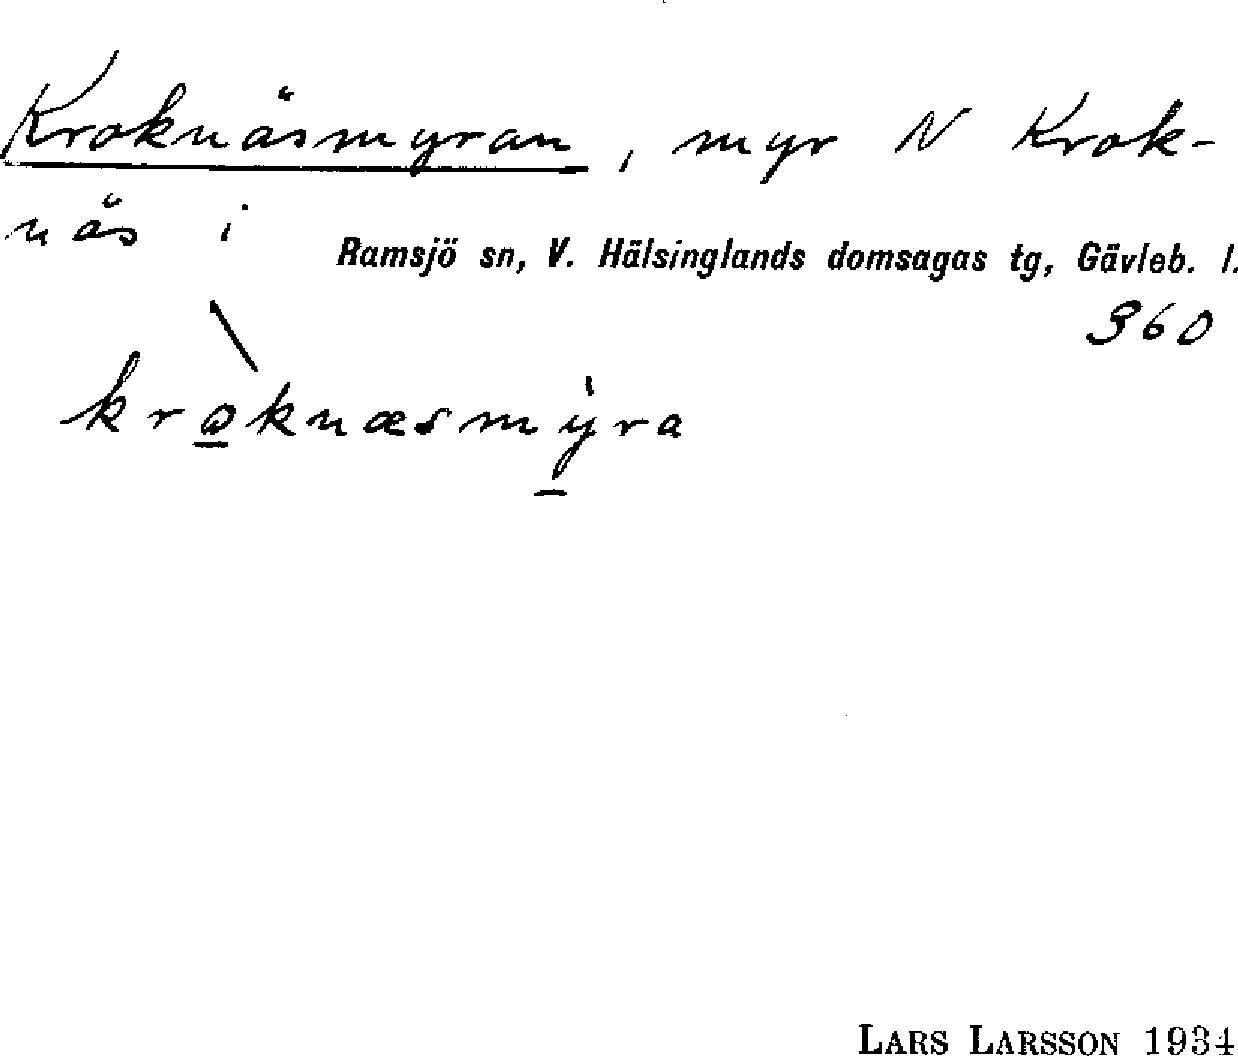 Kroknäsmyran, myr N Krok-
näs i
Ramsjö sn, V. Hälsinglands domsagas tg, Gävleb. l.
360
kro̲knæsmỳ̲ra
LARS LARSSON 1934